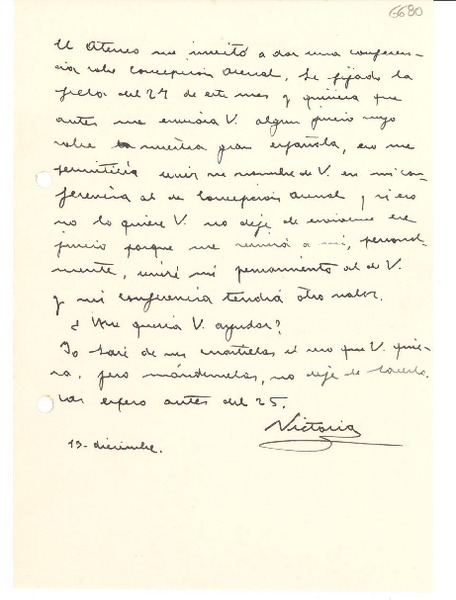 6680
El Ateneo me invitó a dar una conferen-
cia sobre Concepción Arenal. He fijado la
fecha del 27 de este mes y quisiera que
antes me enviara V. algun juicio suyo
sobre nuestra gran española, eso me
permitiría unir su nombre de V. en mi con-
ferencia al de Concepción Arenal, y si eso
no lo quiere V. no deje de enviarme ese
juicio porque me servirá a mi, personal-
mente, uniré mi pensamiento al de V.
y mi conferencia tendrá otro valor.
¿Me querrá V. ayudar?
Yo haré de sus cuartillas el uso que V. quie-
ra, pero mándemelas, no deje de hacerlo.
Las espero antes del 25.
Victoria
13-diciembre.